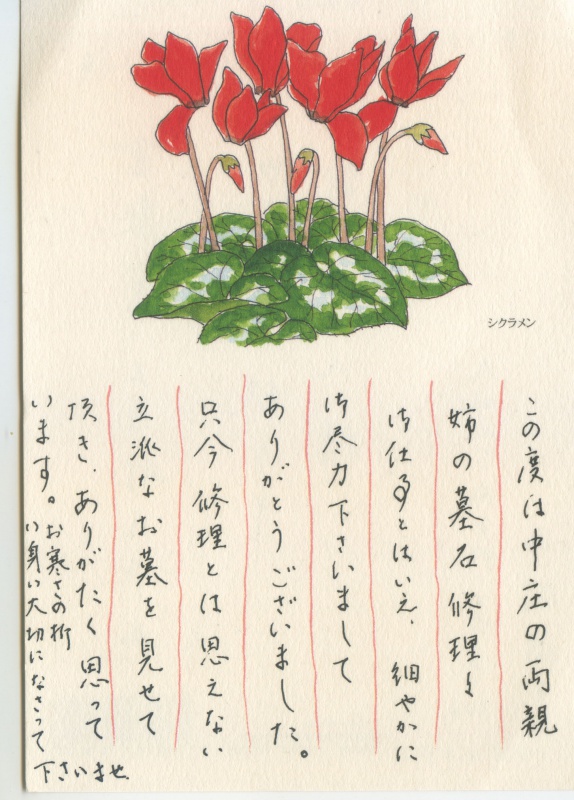 シクラメン
この度は中庄の両親
姉の墓石修理を
御仕事とはいえ、細やかに
御尽力下さいまして
ありがとうございました。
只今修理とは思えない
立派なお墓を見せて
頂き、ありがたく思って
います。お寒さの折
御身御大切になさって
下さいませ